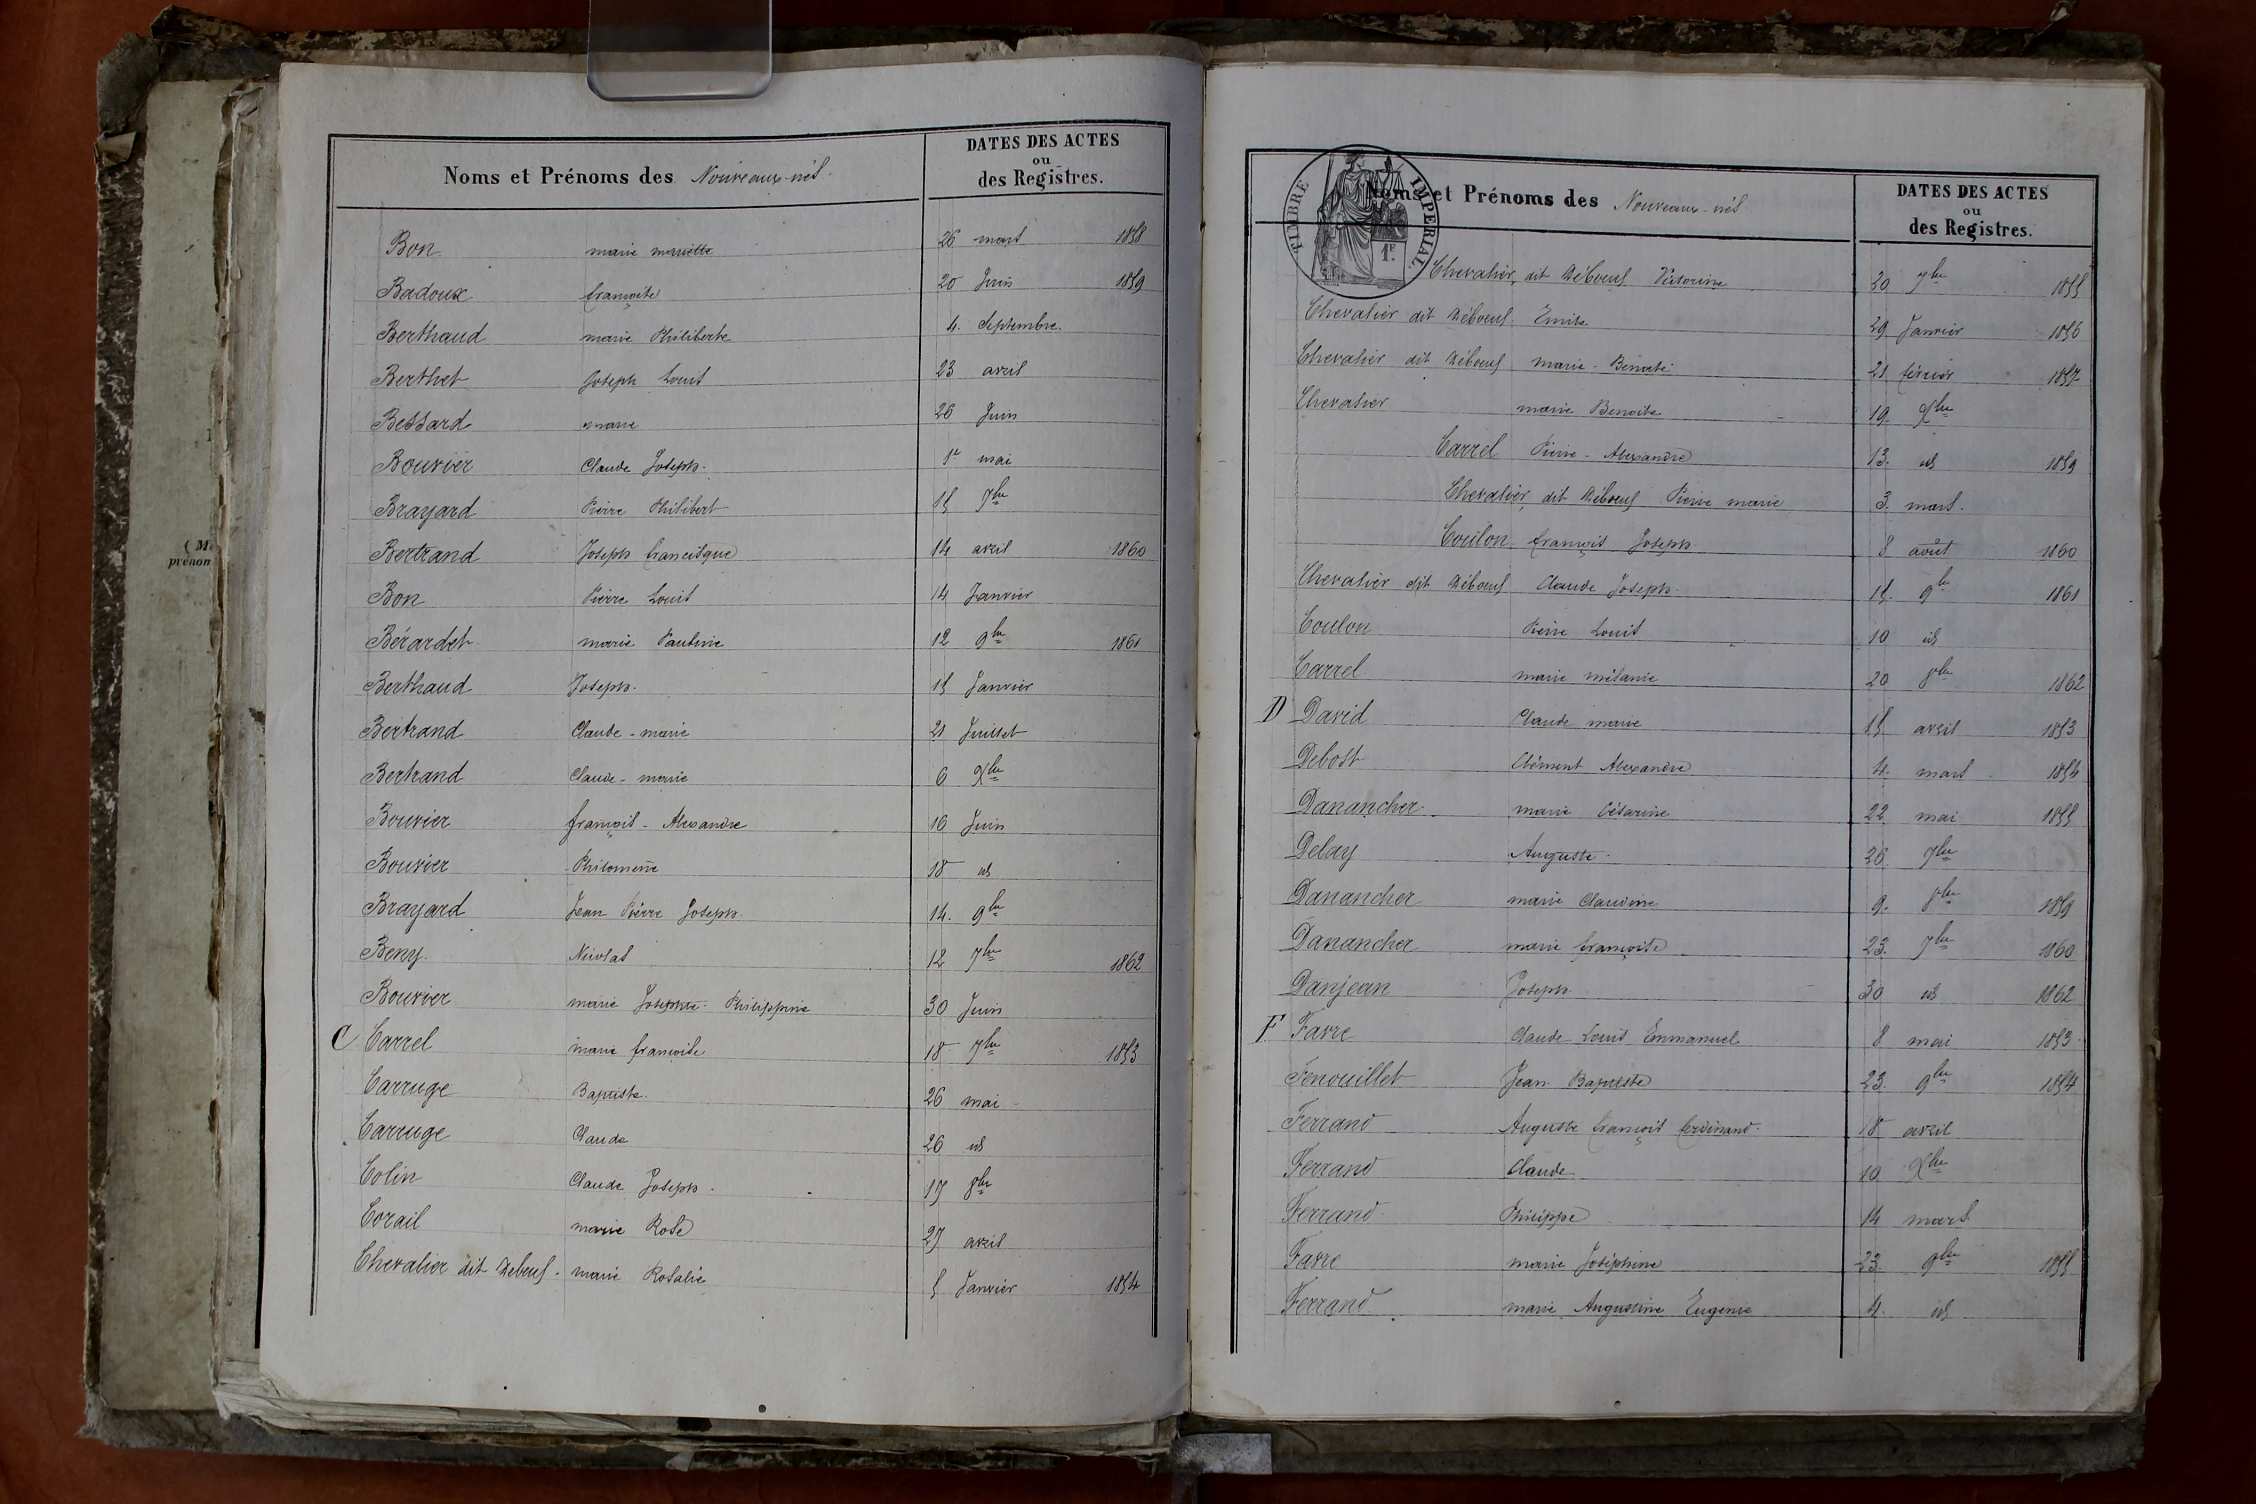 Noms et Prénoms des Nouveaux-nés.
DATES DES ACTES
ou
des Registres.
Bon marie mariette 26 mars 1858
Badoux françoise 20 Juin 1859
Berthaud marie Philiberte 4. Septembre.
Berthet Joseph Louis 23 avril
Bessard marie 26 Juin
Bouvier Claude Joseph. 1er mai
Brayard Pierre Philibert 15 7bre
Bertrand Joseph francisque 14 avril 1860
Bon Pierre Louis 14 Janvier
Bérardet marie Pauline 12 9bre 1861
Berthaud Joseph. 15 Janvier
Bertrand Claude-marie 21 Juillet
Bertrand Claude-marie 6 Xbre
Bouvier françois-Alexandre 16 Juin
Bouvier Philomène 18 id
Brayard Jean Pierre Joseph. 14. 9bre
Beny Nicolas 12 7bre 1862
Bouvier marie Josephte Philippine 30 Juin
C Carrel marie françoise 18 7bre 1853
Carruge Baptiste. 26 mai
Carruge Claude 26 id
Colin Claude Joseph. 17 8bre
Corail marie Rose 27 avril
Chevalier dit Debeuf. marie Rosalie 5 Janvier 1854
(M.
prénom
TIMBRE IMPERIAL.
1F.
Noms et Prénoms des Nouveaux-nés
DATES DES ACTES
ou
des Registres.
Chevalier, dit Débœuf Victorine 20 7bre 1855
Chevalier dit Débœuf. Emile 29 Janvier 1856
Chevalier dit Débœuf marie-Benoite 21 février 1857
Chevalier marie Benoite 19. Xbre
Carrel Pierre-Alexandre 13. id 1859
Chevalier, dit Débœuf Pierre marie 3. mars.
Coulon françois Joseph 8 août 1860
Chevalier dit Débœuf Claude Joseph. 15. 9b 1861
Coulon Pierre Louis 10 id
Carrel marie mélanie 20 8bre 1862
D David Claude marie 15 avril 1853
Debost Clément Alexandre 4. mars 1854
Danancher marie Césarine 22 mai 1855
Delay Auguste. 26 7bre
Danancher marie Claudine 9. 8bre 1859
Danancher marie françoise 23. 7bre 1860
Danjean Joseph 30 id 1862
F Favre Claude Louis Emmanuel 8 mai 1853
Fenouillet Jean Baptiste 23. 9bre 1854
Ferrand Auguste françois ferdinand. 18 avril
Ferrand Claude 10 Xbre
Ferrand Philippe 14 mars
Favre marie Joséphine 23. 9bre 1855
Ferrand marie Augustine Eugenie 4. id